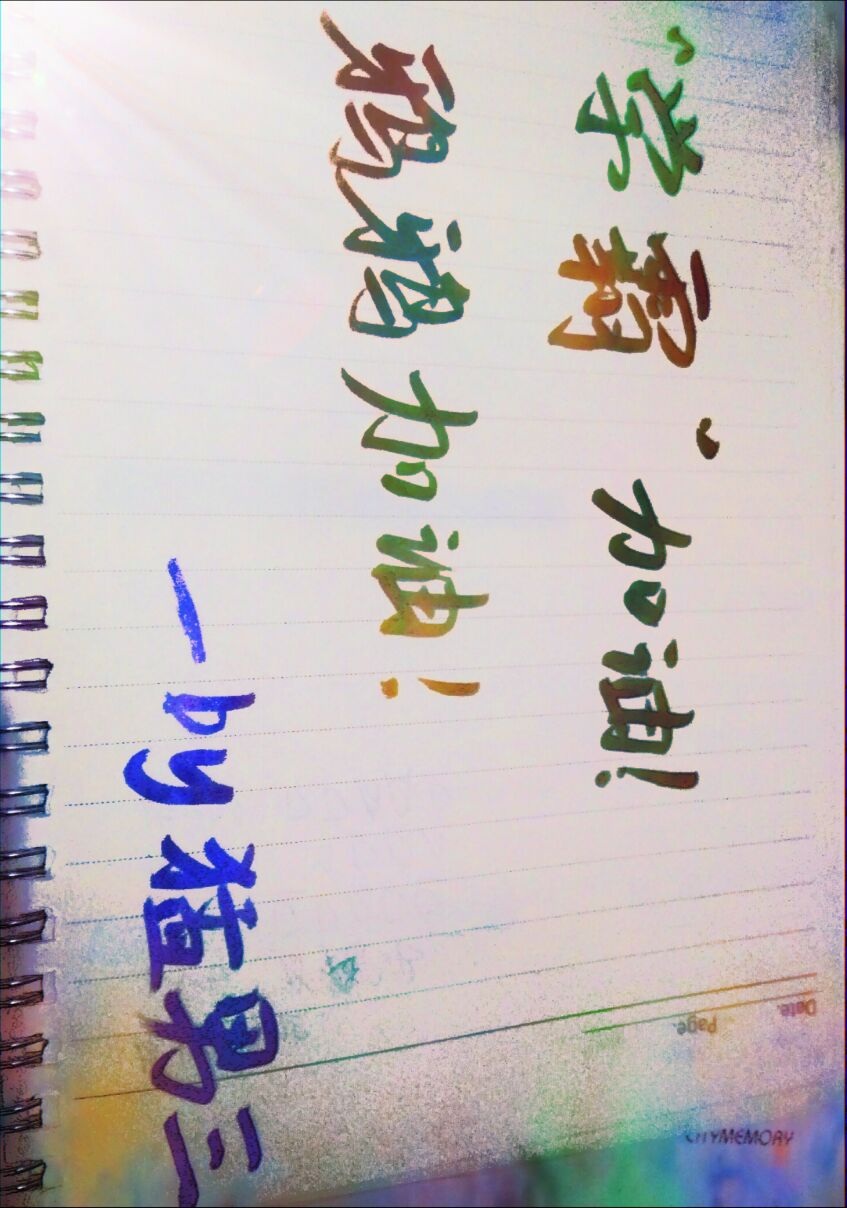 “学霸”加油!
加油!
—by 猛男三
Date.
Page.
CITYMEMORY